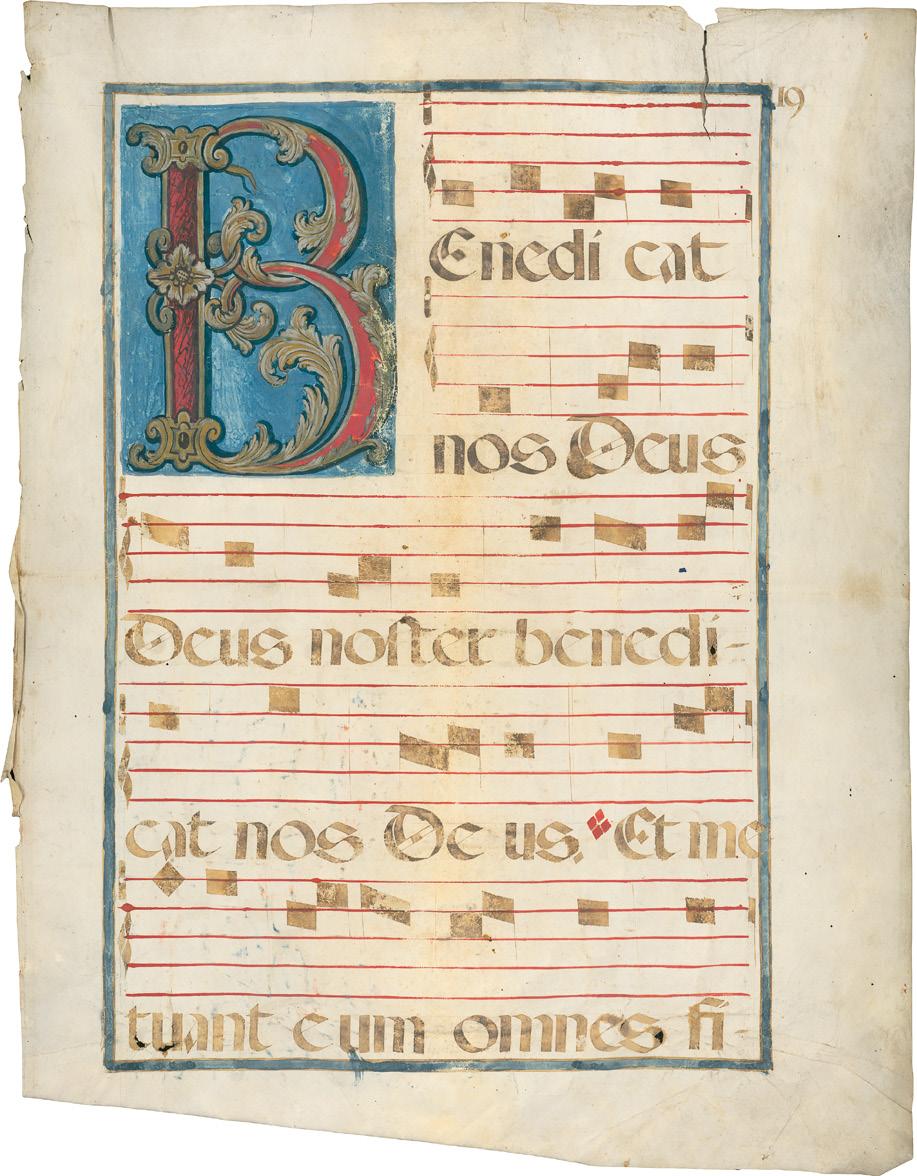 19
BEnedi cat
nos Deus
Deus noster benedi-
cat nos De us. Et me
tuant eum omnes fi-